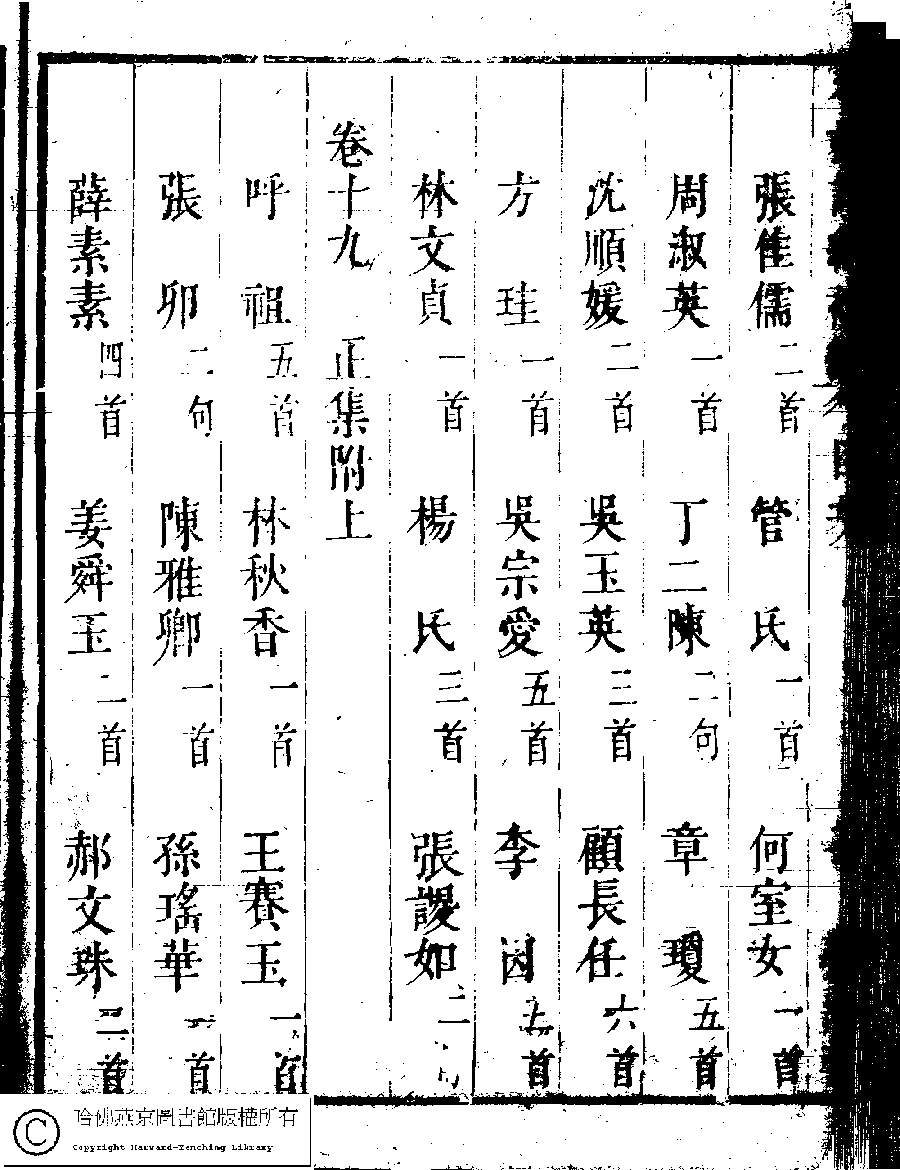 張隹儒二首 管氏一首 何室女一首
周淑英一首 丁二陳二句 章瓊五首
沈順媛二首 吳玉英三首 顧長任六首
方珪一首 吳宗愛五首 李因 首
林文貞一首 楊氏三首 張謖如二
卷十九 正集附上
呼祖五首 林秋香一首 王賽玉一首
張卯二句 陳雅卿一首 孫瑤華 首
薛素素四首 姜舜玉二首 郝文珠二首
哈佛燕京圖書館版權所有
Copyright Harvard-Yenching Library